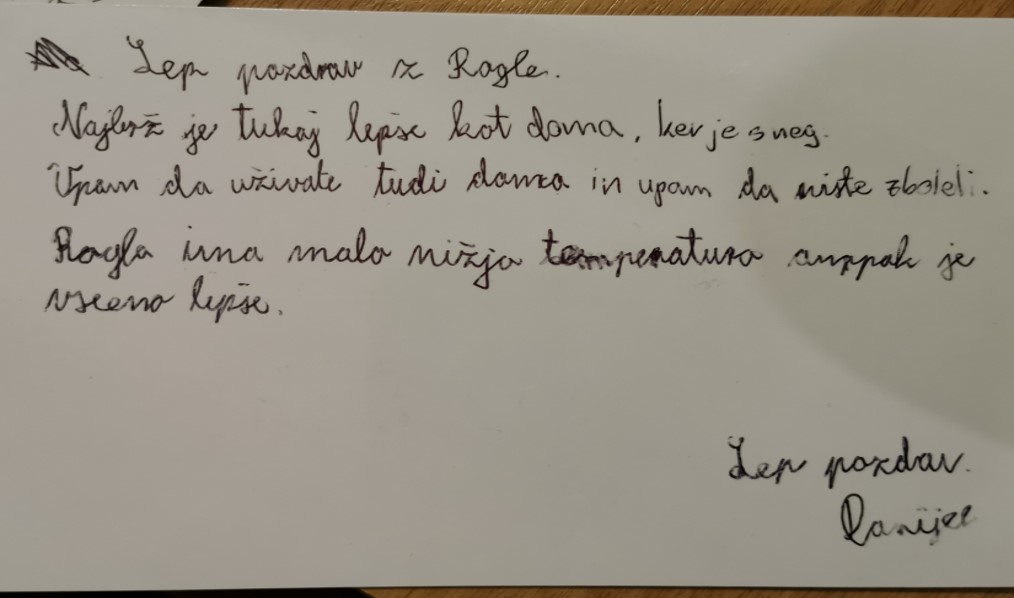 Lep pozdrav z Rogle.
Najbrž je tukaj lepše kot doma, ker je sneg.
Upam da uživate tudi doma in upam da niste zboleli.
Rogla ima malo nižjo temperaturo ampak je
vseeno lepše.
Lep pozdav.